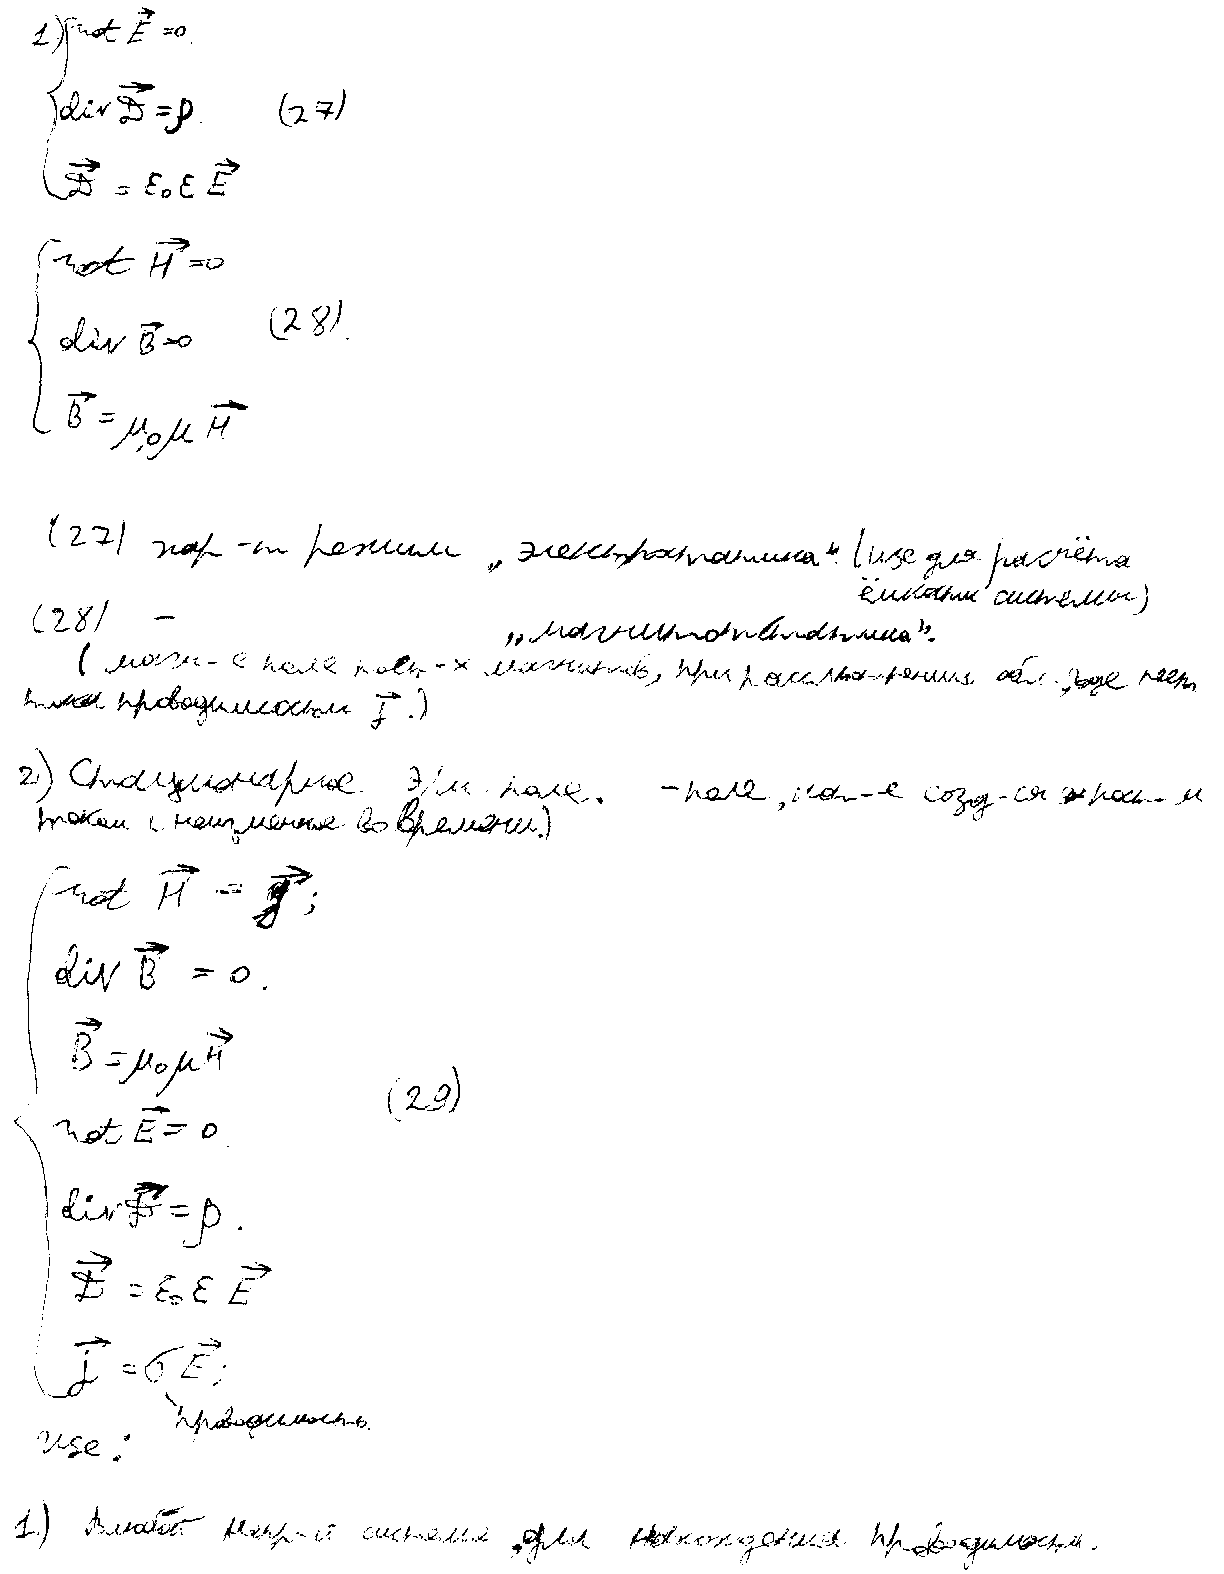 1) rot E⃗ =0.
div D⃗ = ρ. (27)
D⃗ = ε₀ ε E⃗
rot H⃗ =0
div B⃗ =0 (28).
B⃗ = μ₀ μ H⃗
(27) хар-т режим „электростатика“. (use для расчёта
ёмкости системы)
(28) — „магнитостатика“.
( магн-е поле пост-х магнитов, при рассмотрении обл., где нет
тока проводимости j⃗.)
2) Стационарное эл.м. поле. - поле, кот-е созд-ся пост-м
током (неизменное во времени.)
rot H⃗ = j⃗;
div B⃗ = 0.
B⃗ = μ₀ μ H⃗
(29)
rot E⃗ = 0.
div D⃗ = ρ.
D⃗ = ε₀ ε E⃗
j⃗ = σ E⃗;
проводимость.
use:
1.) системе для нахождения проводимости.